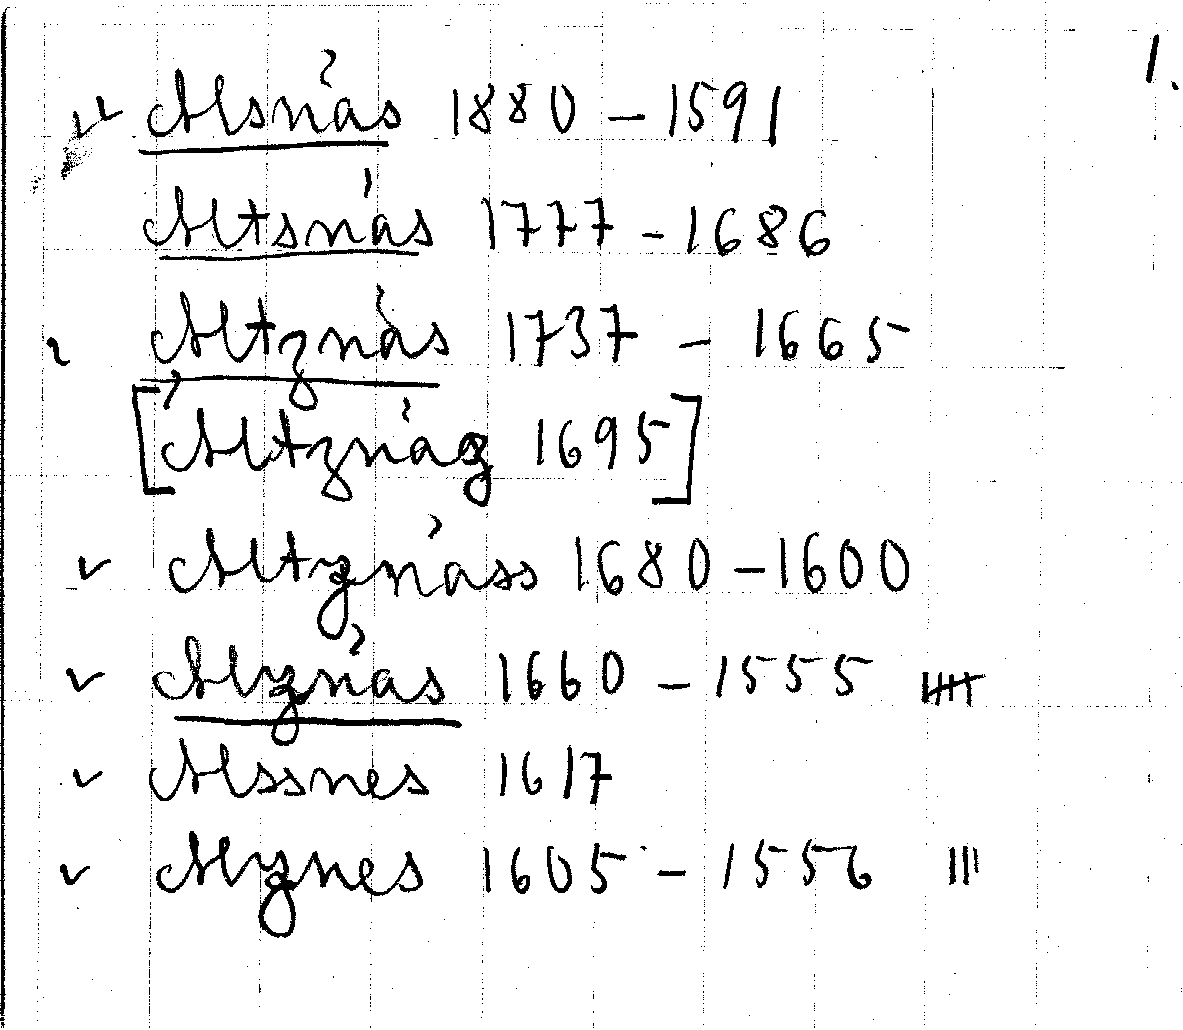 1.
Alsnăs 1880 – 1591
Altsnăs 1777 – 1686
Altznăs 1737 – 1665
[Altznăz 1695]
Altznăss 1680 – 1600
Alznăs 1660 – 1555
Alssnes 1617
Alznes 1605 – 1556